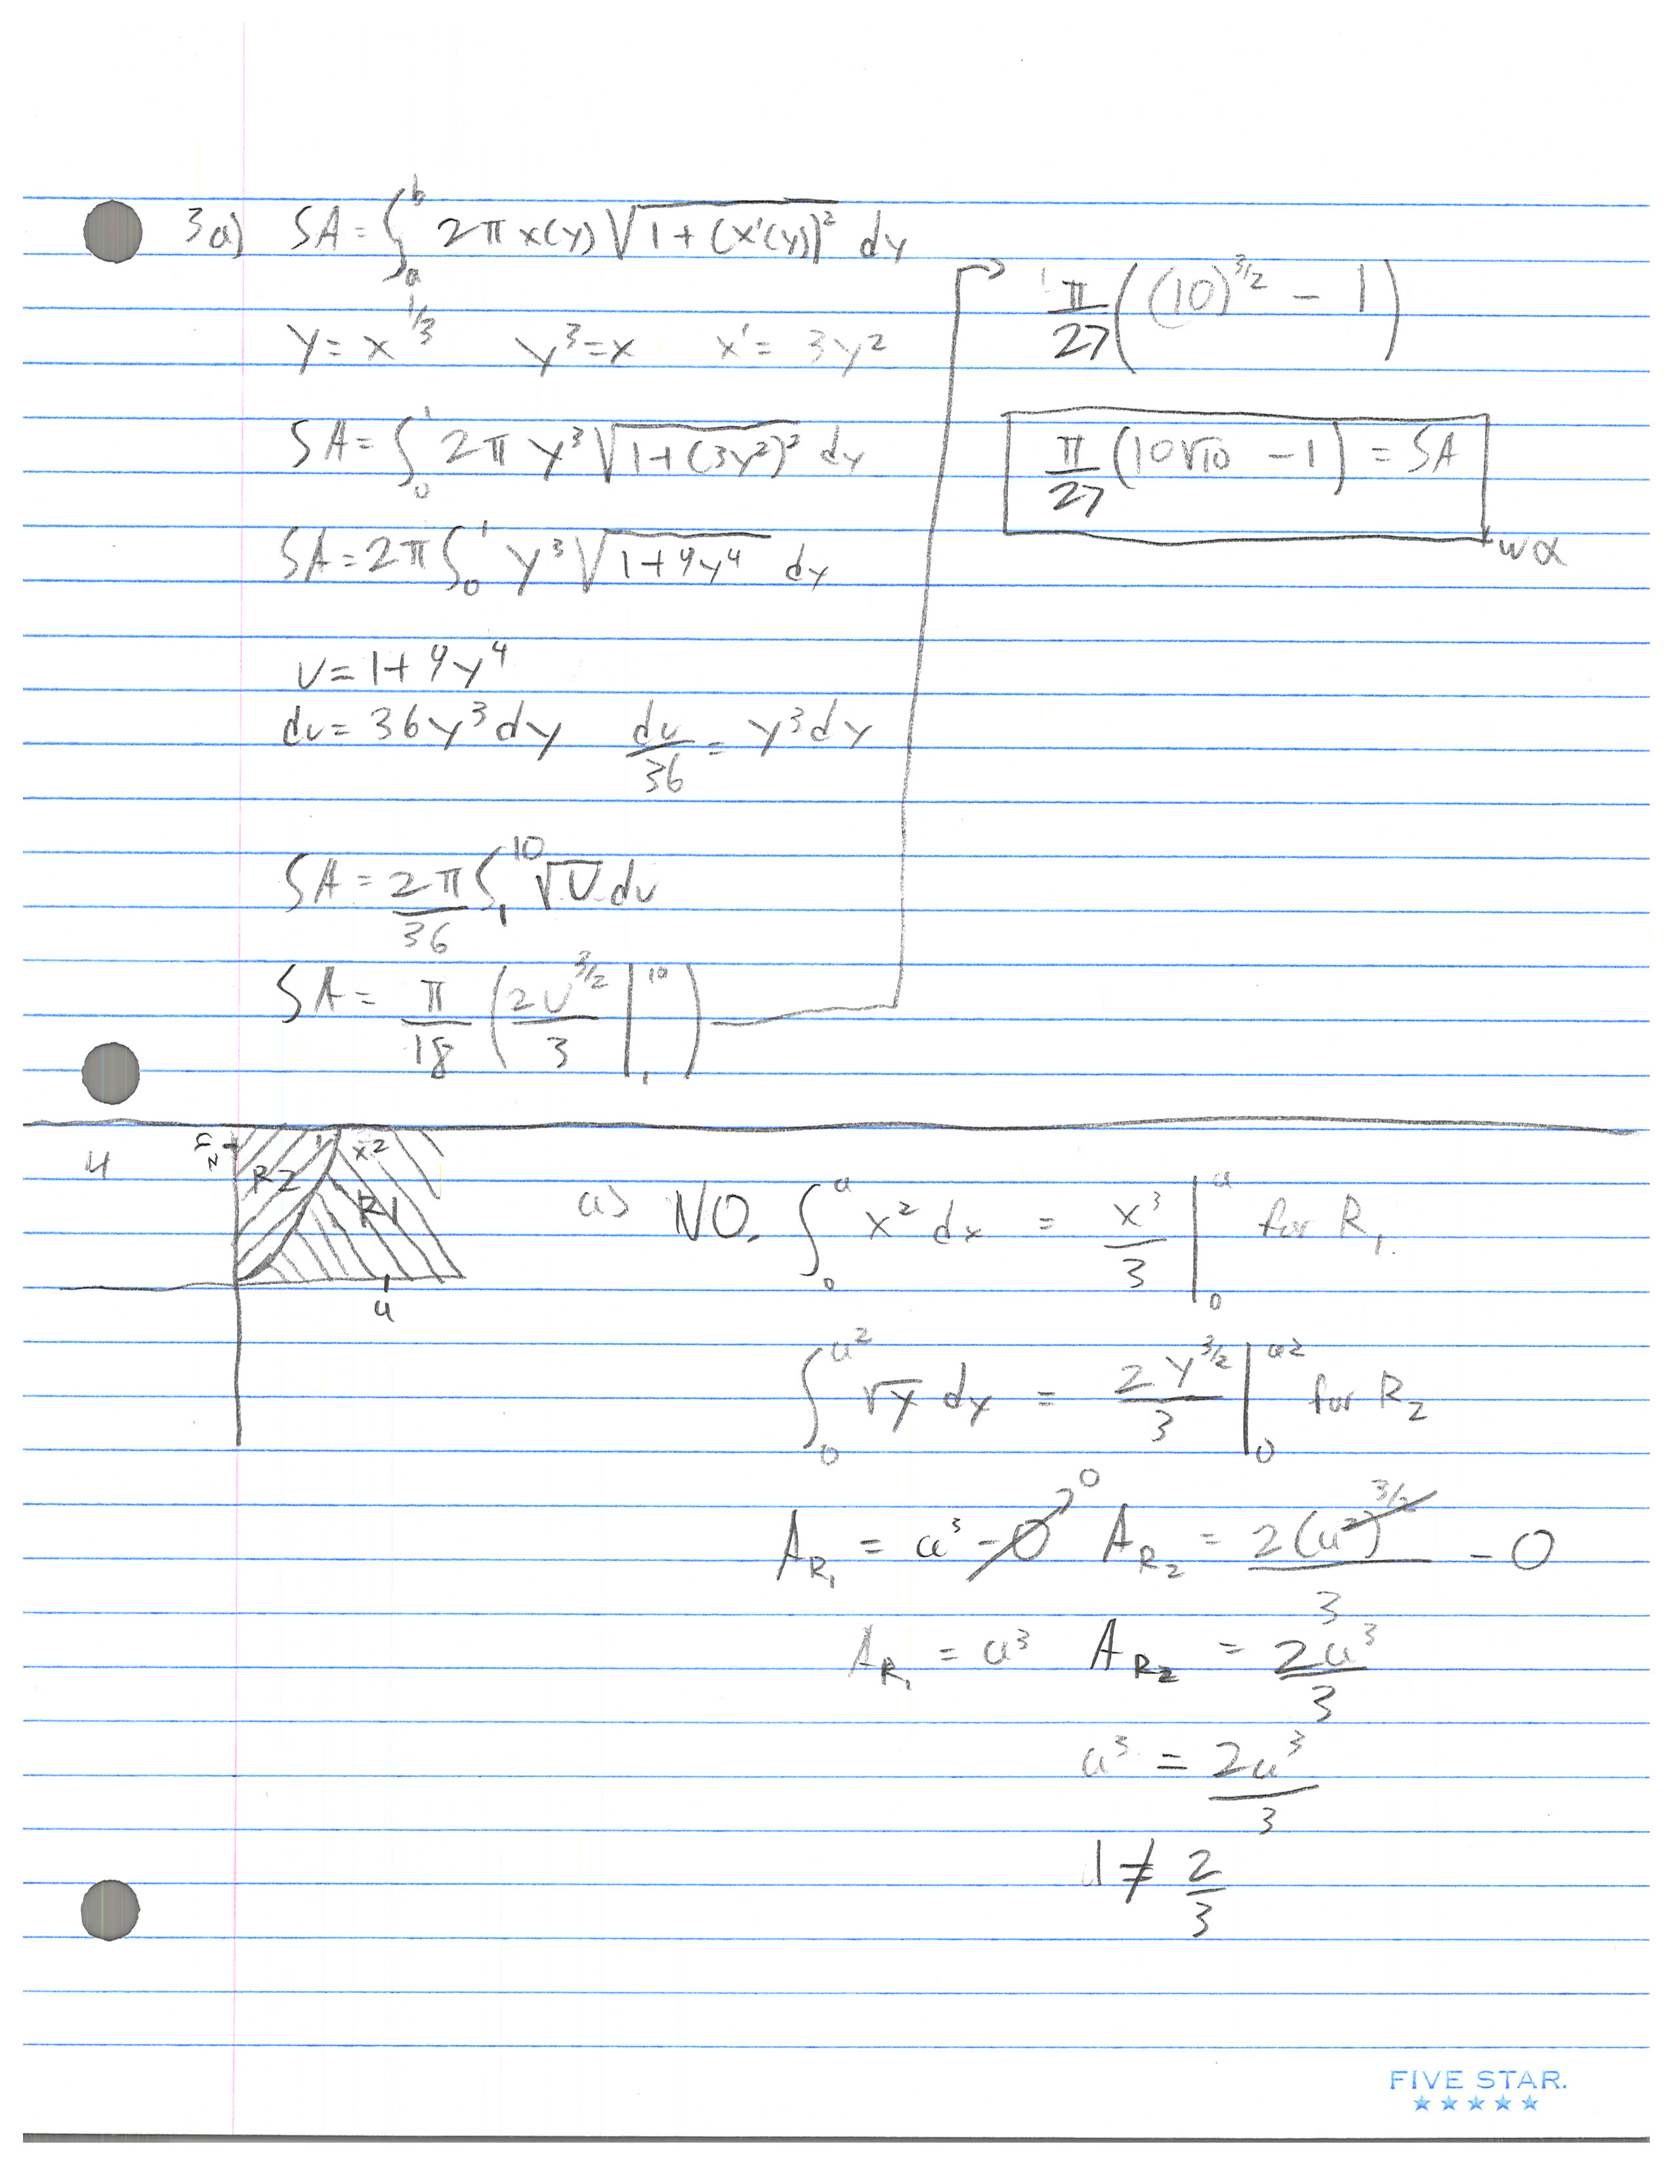 3a) SA = ∫_a^b 2π x(y) √(1 + (x'(y))² dy
y = x^(1/3) y³ = x x' = 3y²
SA = ∫_0^1 2π y³ √(1+(3y²)²) dy
SA = 2π ∫_0^1 y³ √(1+9y⁴) dy
u = 1+9y⁴
du = 36y³dy du/36 = y³dy
SA = 2π/36 ∫_1^10 √u du
SA = π/18 (2u^(3/2)/3 |_1^10)
π/27 ((10)^(3/2) - 1)
π/27 (10√10 - 1) = SA
wα
4
a²
R2
x²
R1
a
a) NO. ∫_0^a x² dx = x³/3 |_0^a for R₁
∫_0^(a²) √y dy = 2y^(3/2)/3 |_0^(a²) for R₂
A_R₁ = a³ - 0 0 A_R₂ = 2(a²)^(3/2)/3 - 0
A_R₁ = a³ A_R₂ = 2a³/3
a³ = 2a³/3
1 ≠ 2/3
FIVE STAR.
★★★★★